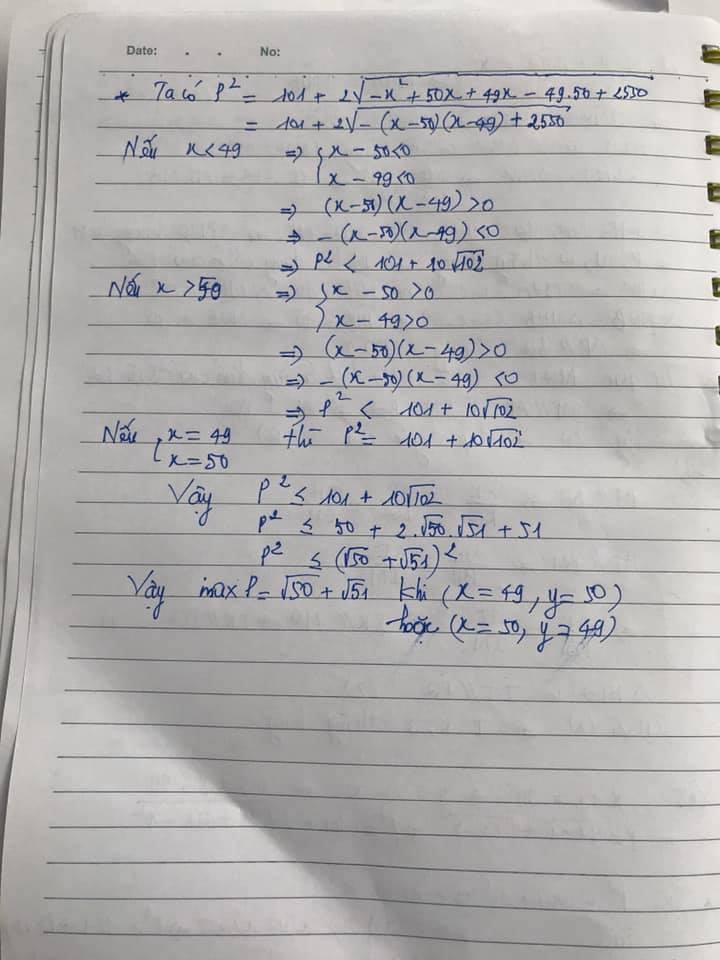 Date: . . No:
* Ta có P² = 101 + 2√(-x² + 50x + 49x - 49.50 + 2550)
= 101 + 2√(-(x-50)(x-49) + 2550)
Nếu x < 49 => { x - 50 < 0
x - 49 < 0
=> (x-50)(x-49) > 0
=> -(x-50)(x-49) < 0
=> P² < 101 + 10√102
Nếu x > 50 => { x - 50 > 0
x - 49 > 0
=> (x-50)(x-49) > 0
=> -(x-50)(x-49) < 0
=> P² < 101 + 10√102
Nếu [ x = 49 thì P² = 101 + 10√102
x = 50
Vậy P² ≤ 101 + 10√102
P² ≤ 50 + 2.√50.√51 + 51
P² ≤ (√50 + √51)²
Vậy max P = √50 + √51 khi (x = 49, y = 50)
hoặc (x = 50, y = 49)